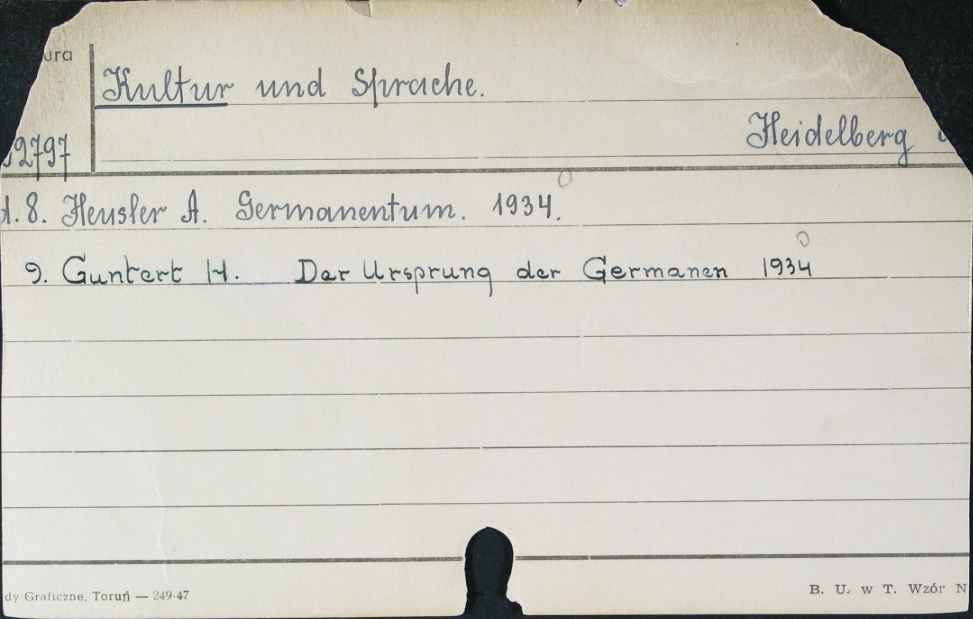 ura
Kultur und Sprache.
Heidelberg
02797
t. 8. Heusler A. Germanentum. 1934.
9. Guntert H. Der Ursprung der Germanen 1934
dy Graficzne, Toruń — 249-47
B. U. w T. Wzór N